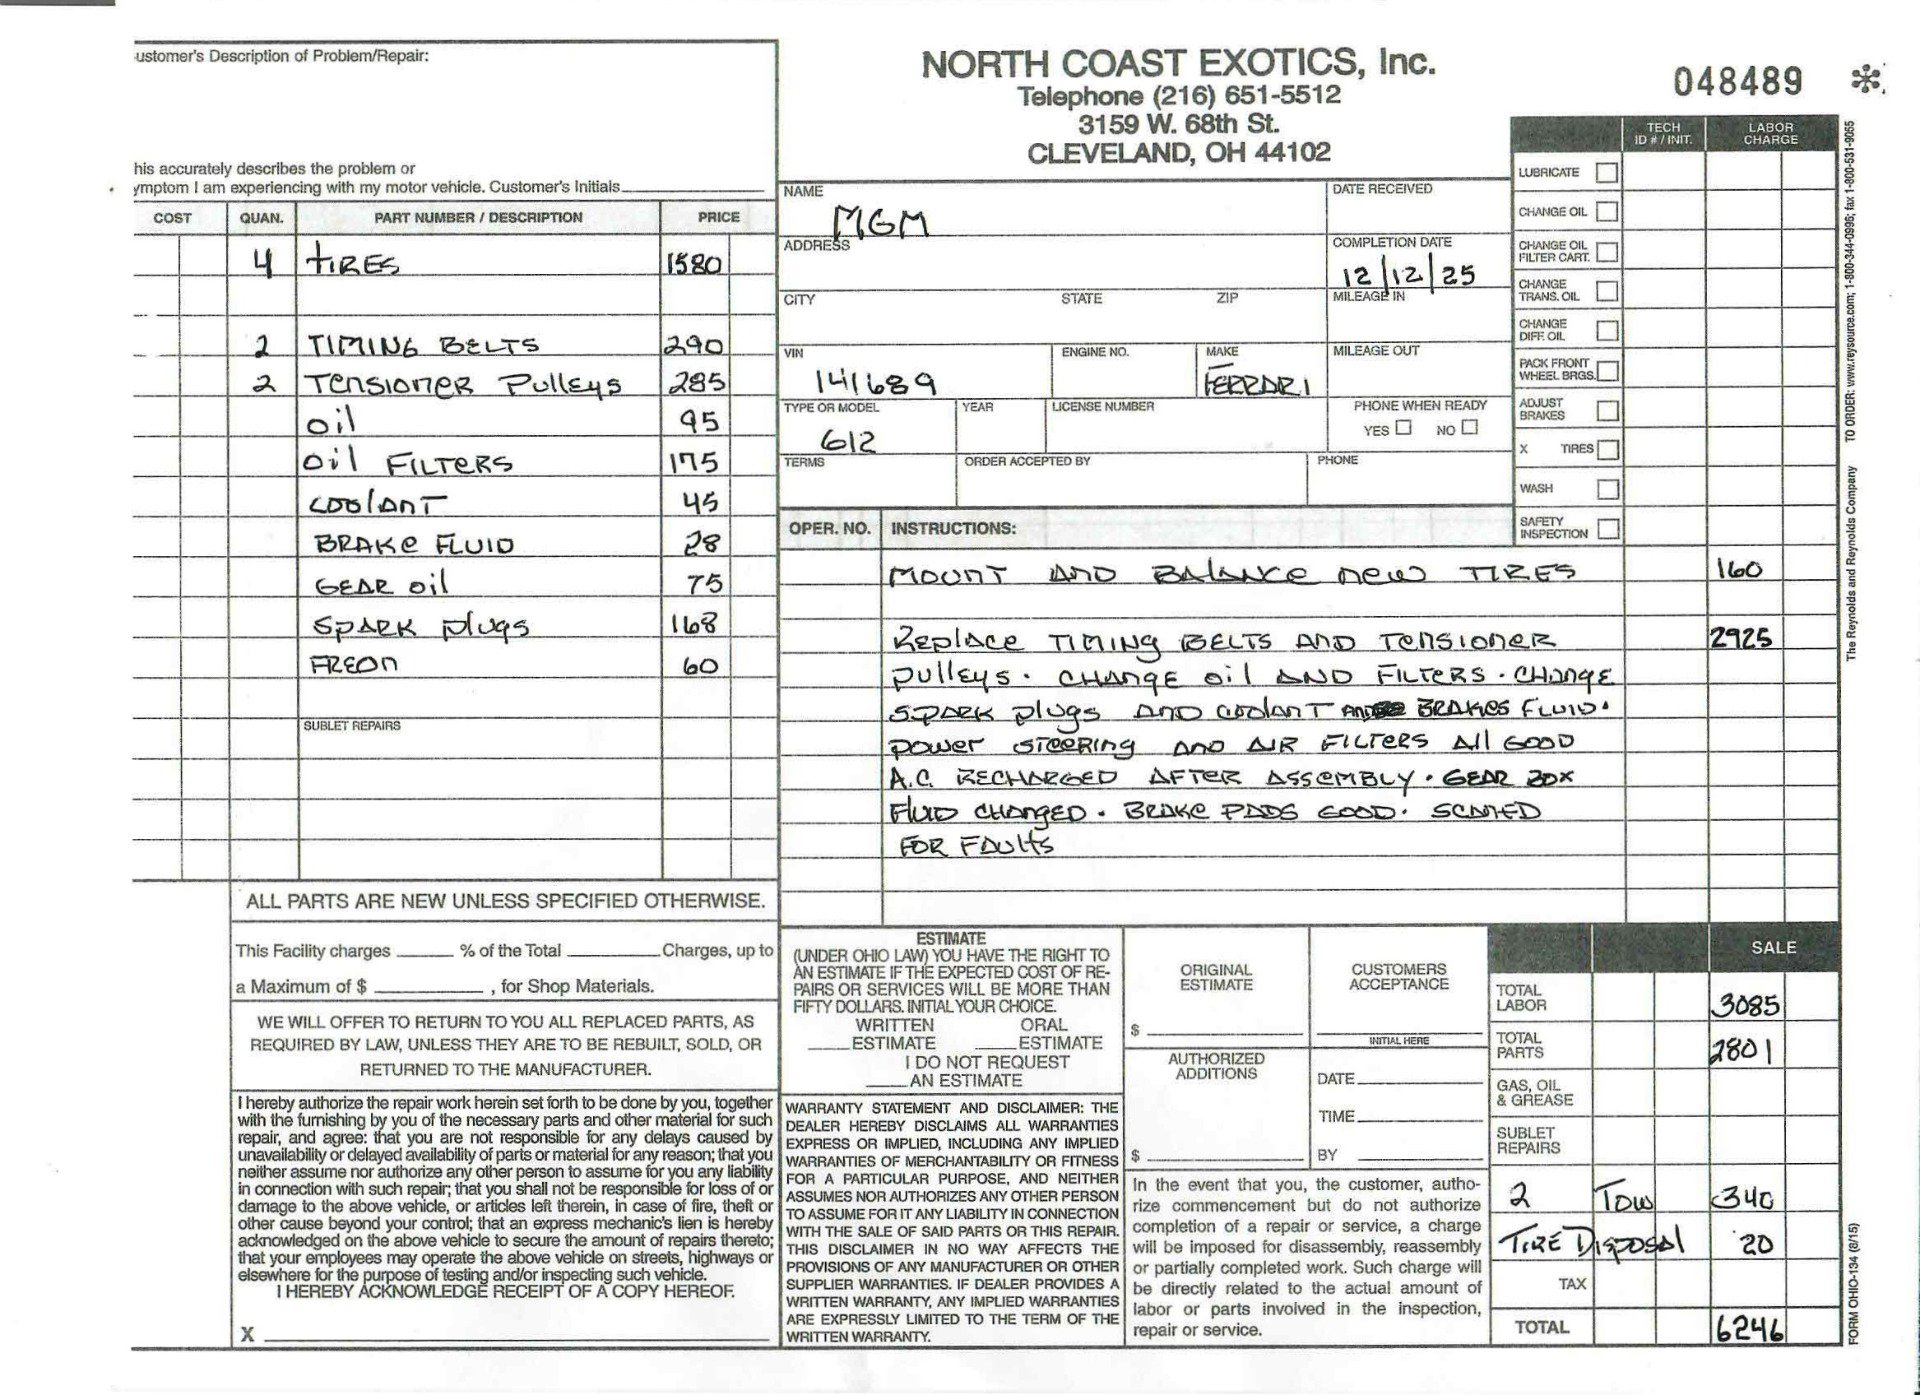 ustomer's Description of Problem/Repair:
his accurately describes the problem or
ymptom I am experiencing with my motor vehicle. Customer's Initials
COST QUAN. PART NUMBER / DESCRIPTION PRICE
4 TIRES 1580
2 TIMING BELTS 290
2 TENSIONER PULLEYS 285
OIL 95
OIL FILTERS 175
COOLANT 45
BRAKE FLUID 28
GEAR OIL 75
SPARK PLUGS 168
FREON 60
SUBLET REPAIRS
ALL PARTS ARE NEW UNLESS SPECIFIED OTHERWISE.
This Facility charges ______ % of the Total ______ Charges, up to
a Maximum of $ ______, for Shop Materials.
WE WILL OFFER TO RETURN TO YOU ALL REPLACED PARTS, AS
REQUIRED BY LAW, UNLESS THEY ARE TO BE REBUILT, SOLD, OR
RETURNED TO THE MANUFACTURER.
I hereby authorize the repair work herein set forth to be done by you, together
with the furnishing by you of the necessary parts and other material for such
repair, and agree: that you are not responsible for any delays caused by
unavailability or delayed availability of parts or material for any reason; that you
neither assume nor authorize any other person to assume for you any liability
in connection with such repair; that you shall not be responsible for loss of or
damage to the above vehicle, or articles left therein, in case of fire, theft or
other cause beyond your control; that an express mechanic's lien is hereby
acknowledged on the above vehicle to secure the amount of repairs thereto;
that your employees may operate the above vehicle on streets, highways or
elsewhere for the purpose of testing and/or inspecting such vehicle.
I HEREBY ACKNOWLEDGE RECEIPT OF A COPY HEREOF.
X
NORTH COAST EXOTICS, Inc.
Telephone (216) 651-5512
3159 W. 68th St.
CLEVELAND, OH 44102
048489 *
NAME
MGM
DATE RECEIVED
ADDRESS
COMPLETION DATE
12/12/25
CITY STATE ZIP MILEAGE IN
VIN ENGINE NO. MAKE MILEAGE OUT
141689 FERRARI
TYPE OR MODEL YEAR LICENSE NUMBER PHONE WHEN READY
612 YES NO
TERMS ORDER ACCEPTED BY PHONE
TECH ID # / INIT. LABOR CHARGE
LUBRICATE
CHANGE OIL
CHANGE OIL FILTER CART.
CHANGE TRANS. OIL
CHANGE DIFF. OIL
PACK FRONT WHEEL BRGS.
ADJUST BRAKES
X TIRES
WASH
SAFETY INSPECTION
OPER. NO. INSTRUCTIONS:
MOUNT AND BALANCE NEW TIRES 160
REPLACE TIMING BELTS AND TENSIONER 2925
PULLEYS. CHANGE OIL AND FILTERS. CHANGE
SPARK PLUGS AND COOLANT AND BRAKES FLUID.
POWER STEERING AND AIR FILTERS ALL GOOD
A.C. RECHARGED AFTER ASSEMBLY. GEAR BOX
FLUID CHANGED. BRAKE PADS GOOD. SCANNED
FOR FAULTS
ESTIMATE
(UNDER OHIO LAW) YOU HAVE THE RIGHT TO
AN ESTIMATE IF THE EXPECTED COST OF RE-
PAIRS OR SERVICES WILL BE MORE THAN
FIFTY DOLLARS. INITIAL YOUR CHOICE.
WRITTEN ORAL
____ESTIMATE ____ESTIMATE
I DO NOT REQUEST
____AN ESTIMATE
WARRANTY STATEMENT AND DISCLAIMER: THE
DEALER HEREBY DISCLAIMS ALL WARRANTIES
EXPRESS OR IMPLIED, INCLUDING ANY IMPLIED
WARRANTIES OF MERCHANTABILITY OR FITNESS
FOR A PARTICULAR PURPOSE, AND NEITHER
ASSUMES NOR AUTHORIZES ANY OTHER PERSON
TO ASSUME FOR IT ANY LIABILITY IN CONNECTION
WITH THE SALE OF SAID PARTS OR THIS REPAIR.
THIS DISCLAIMER IN NO WAY AFFECTS THE
PROVISIONS OF ANY MANUFACTURER OR OTHER
SUPPLIER WARRANTIES. IF DEALER PROVIDES A
WRITTEN WARRANTY, ANY IMPLIED WARRANTIES
ARE EXPRESSLY LIMITED TO THE TERM OF THE
WRITTEN WARRANTY.
ORIGINAL ESTIMATE
$
CUSTOMERS ACCEPTANCE
INITIAL HERE
AUTHORIZED ADDITIONS
$
DATE
TIME
BY
In the event that you, the customer, autho-
rize commencement but do not authorize
completion of a repair or service, a charge
will be imposed for disassembly, reassembly
or partially completed work. Such charge will
be directly related to the actual amount of
labor or parts involved in the inspection,
repair or service.
SALE
TOTAL LABOR 3085
TOTAL PARTS 2801
GAS, OIL & GREASE
SUBLET REPAIRS
2 TOW 340
TIRE DISPOSAL 20
TAX
TOTAL 6246
The Reynolds and Reynolds Company TO ORDER: www.reysource.com; 1-800-344-0996; fax 1-800-531-9055
FORM OHIO-134 (8/15)